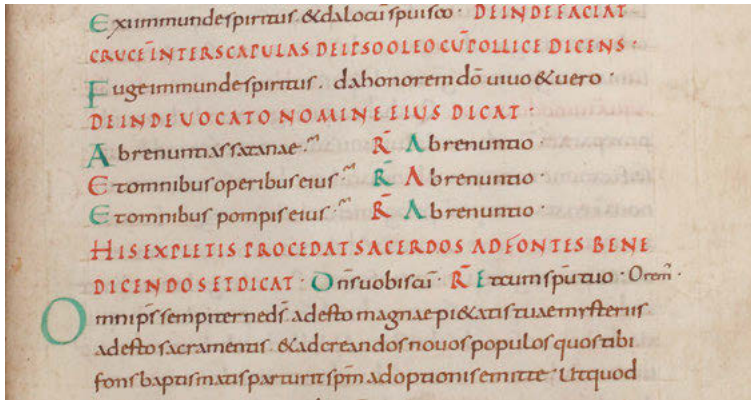 Exi immunde spiritus. & da locū spui sco. DEINDE FACIAT
CRUCĒ INTER SCAPULAS DE IPSO OLEO CŪ POLLICE DICENS.
Fuge immunde spiritus. da honorem dō uiuo & uero.
DEINDE VOCATO NOMINE EIUS DICAT.
Abrenuntias satanae. R̄ Abrenuntio.
Et omnibus operibus eius. R̄ Abrenuntio.
Et omnibus pompis eius. R̄ Abrenuntio.
HIS EXPLETIS PROCEDAT SACERDOS AD FONTES BENE
DICENDOS ET DICAT. Dn̄s uobiscū. R̄ Et cum spū tuo. Orem̄.
Omnip̄s sempiterne ds̄. adesto magnae pi&atis tuae mysteriis
adesto sacramentis. & ad creandos nouos populos quos tibi
fons baptismatis parturit sp̄m adoptionis emitte. Ut quod